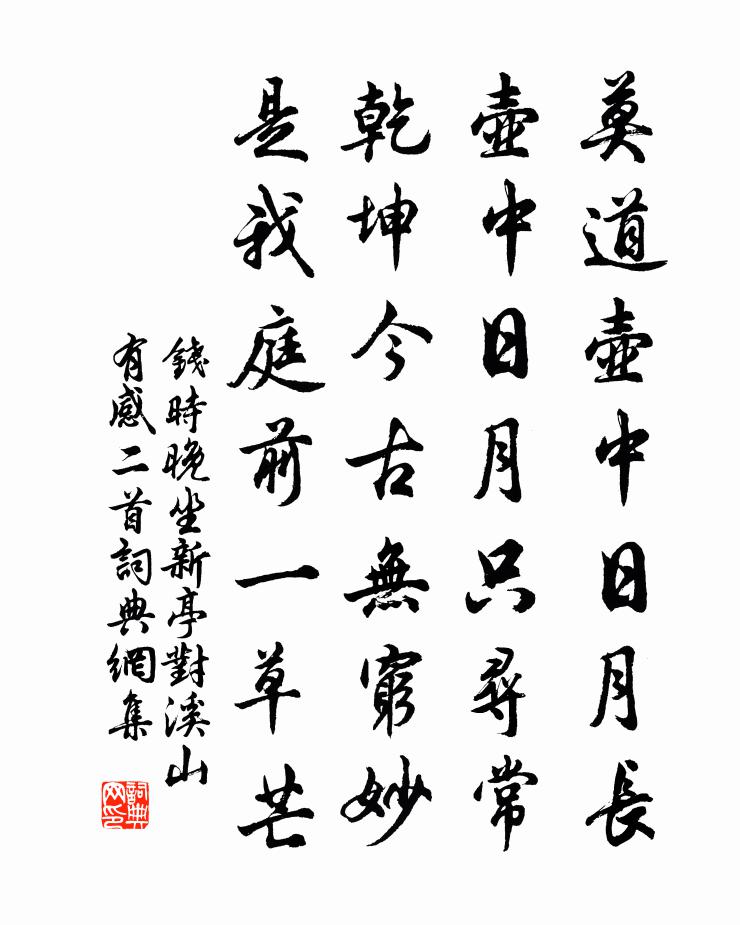 莫道壺中日月長
壺中日月只尋常
乾坤今古無窮妙
是我庭前一草芒
錢時晚坐新亭對溪山
有感二首詞典網集
詞典
网印